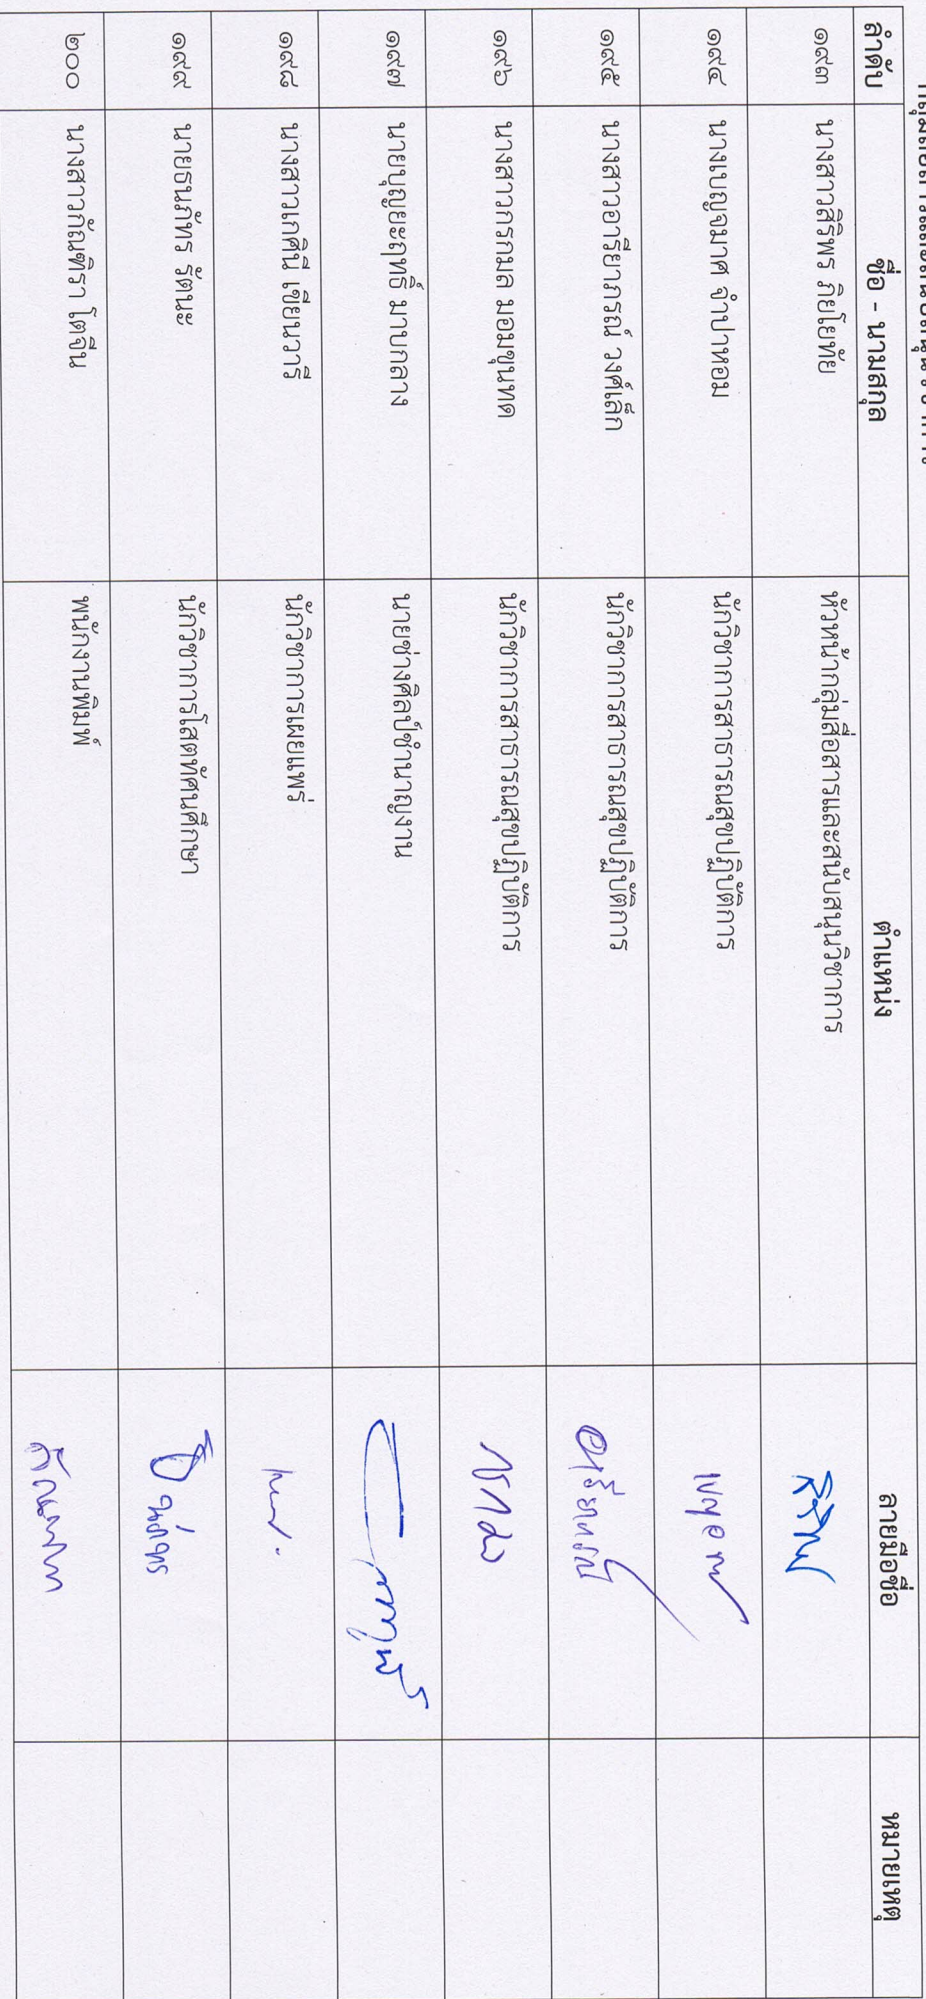 ลำดับ ชื่อ - นามสกุล ตำแหน่ง ลายมือชื่อ หมายเหตุ
๑๙๓ นางสาวสิริพร ภิยโยทัย หัวหน้ากลุ่มสื่อสารและสนับสนุนวิชาการ
๑๙๔ นางเบญจมาศ จำปาหอม นักวิชาการสาธารณสุขปฏิบัติการ
๑๙๕ นางสาวอารียาภรณ์ วงศ์เล็ก นักวิชาการสาธารณสุขปฏิบัติการ อารียาภรณ์
๑๙๖ นางสาวกรกมล มอมขุนทด นักวิชาการสาธารณสุขปฏิบัติการ
๑๙๗ นายบุญยะฤทธิ์ มาบกลาง นายช่างศิลป์ชำนาญงาน
๑๙๘ นางสาวเกศินี เขียนวารี นักวิชาการเผยแพร่
๑๙๙ นายธนภัทร รัตนะ นักวิชาการโสตทัศนศึกษา
๒๐๐ นางสาวกัณฑิรา โตจีน พนักงานพิมพ์